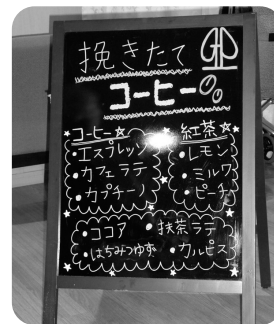 挽きたて
コーヒー
コーヒー☆
・エスプレッソ
・カフェラテ
・カプチーノ
紅茶☆
・レモン
・ミルク
・ピーチ
・ココア ・抹茶ラテ
・はちみつゆず ・カルピス